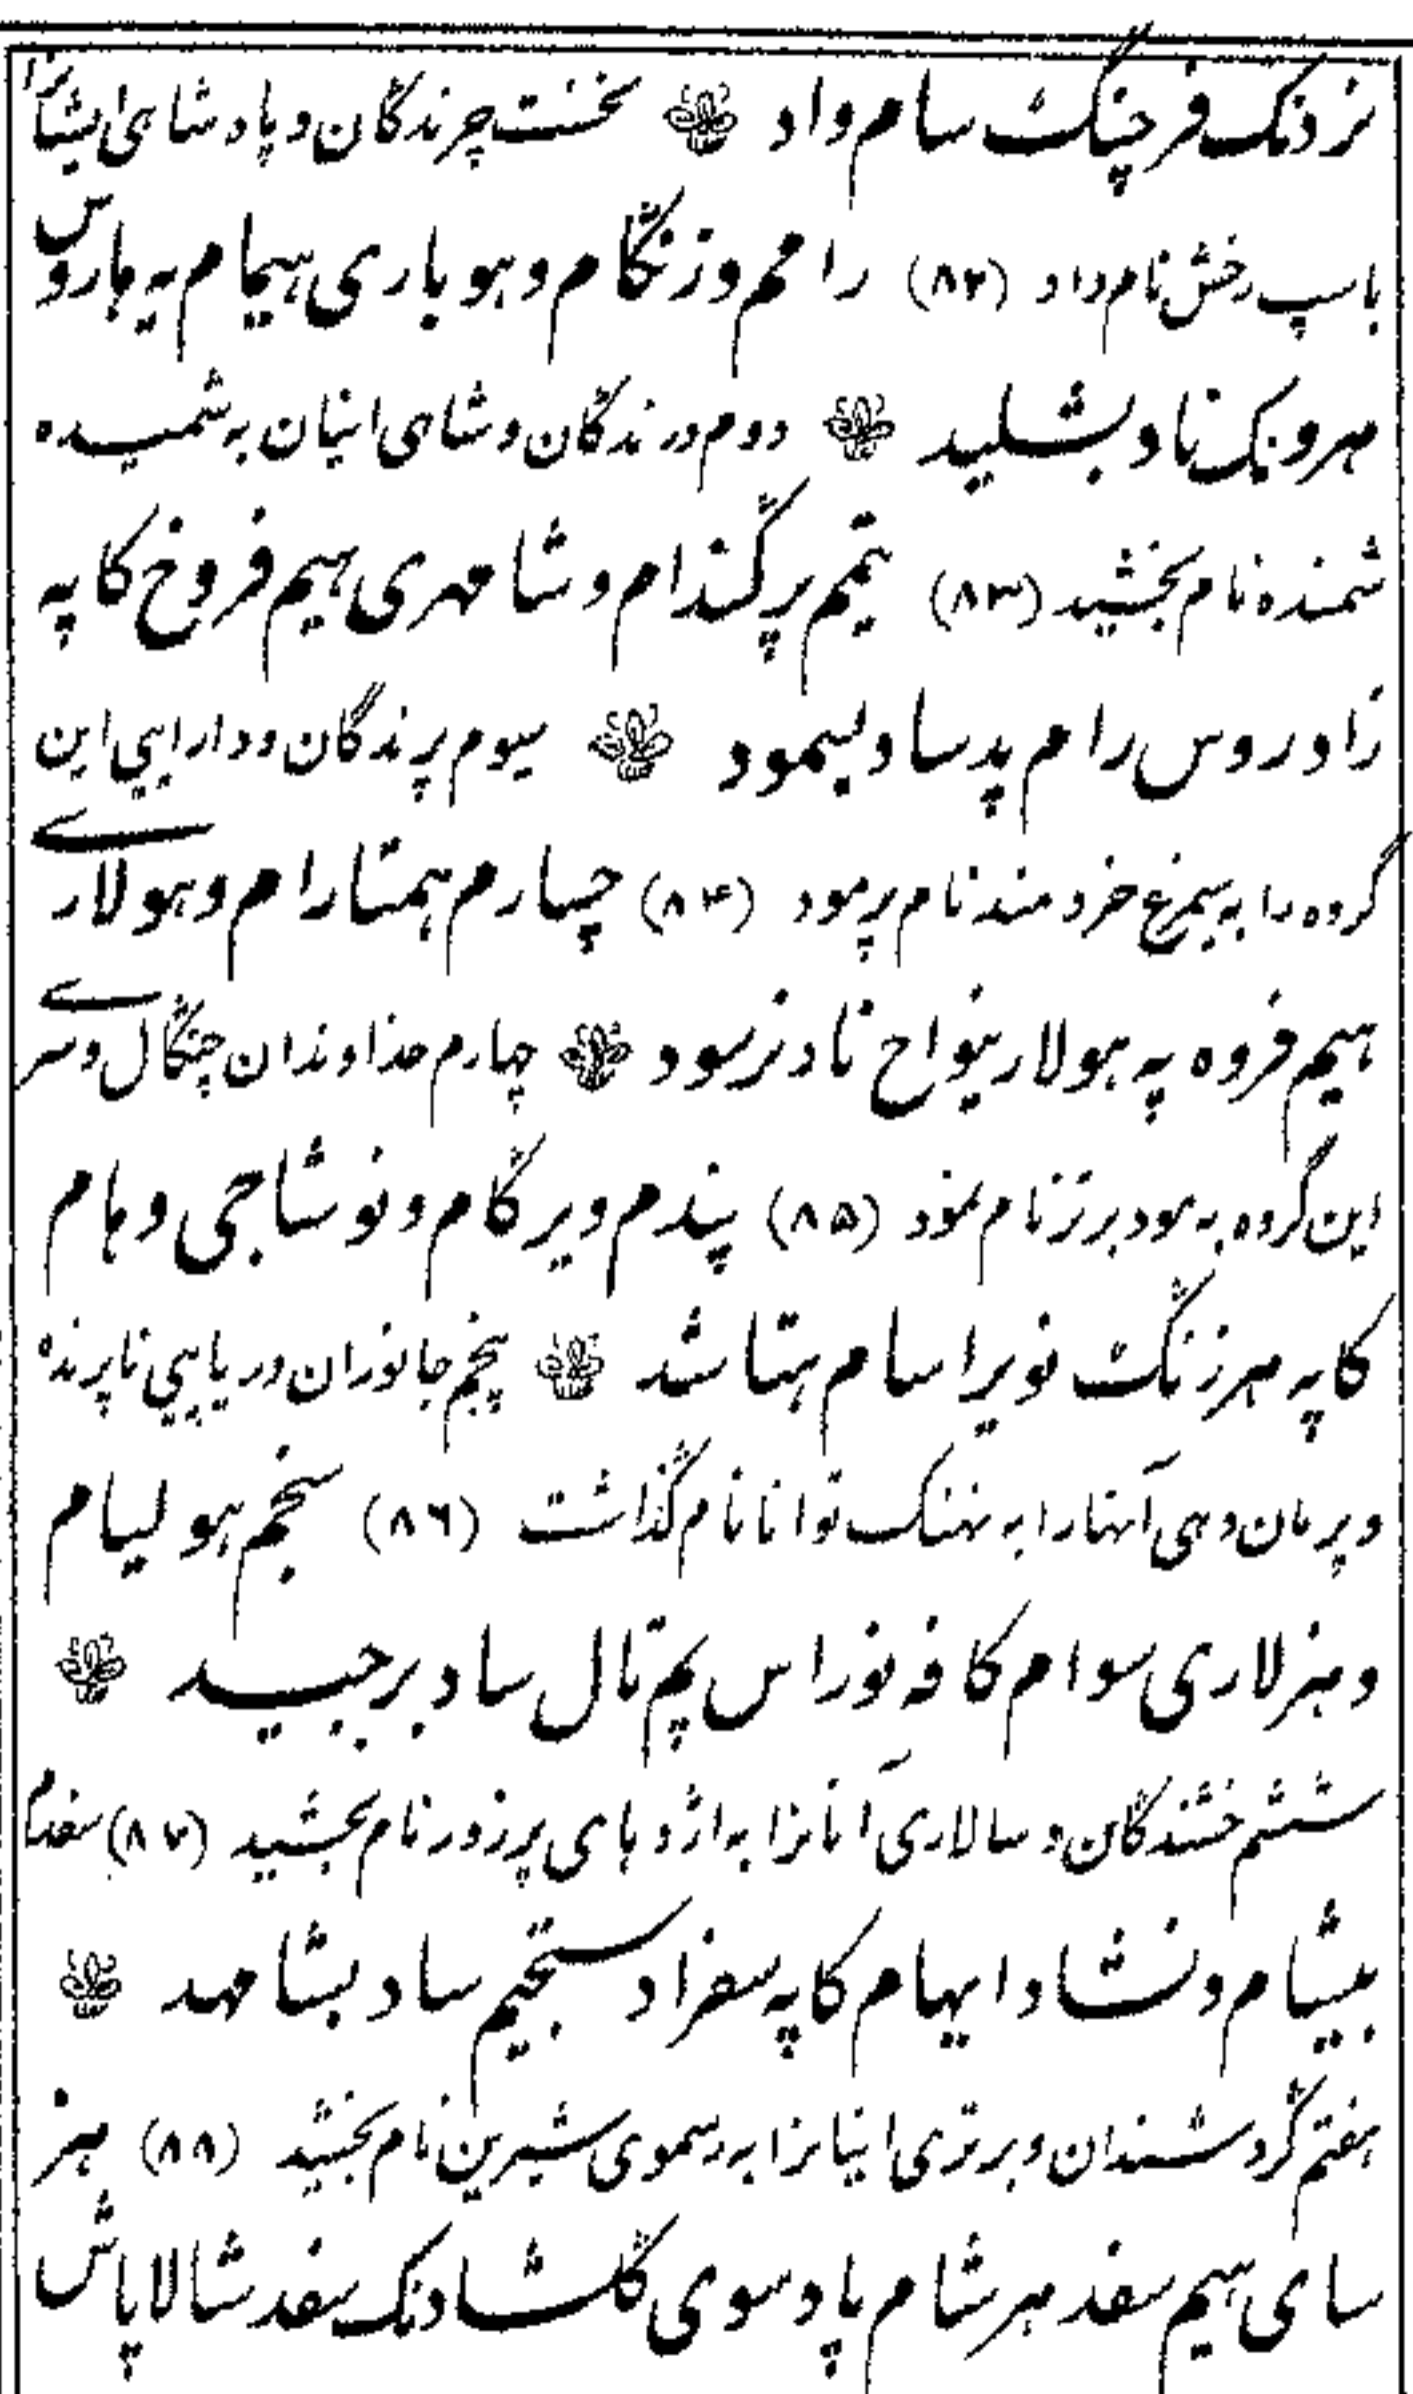 نزدنک فرجنگ سام واد نخست چرندگان و پادشاهی ایشانرا
باسپ رخش نام داد (۸۲) رامخم وزنگام وهوباری هیمام په هاروس
مهرونک ناد بشلید دوم درندگان و شاهی اینان به شمیده
شمنده نام بخشید (۸۳) یتم پرگندام وشامهری هیم فروخ کا په
زاوروس رام پد ساد لیمود سیوم پرندگان و دارایی این
گروه را به سیمرغ خردمند نام پرمود (۸۴) چهارم همتارام وهولاری
هیم فروه په هولار نیواح ناد نرسود چهارم خداوندان چنگال وسری
این گروه به مود برتر نام نمود (۸۵) پندم ویرگام و نوشاجی وهام
کا په مهرزنگ نویرا سام هتاشد پنجم جانوران دریایی ناپرنده
وپرمان دهی آنهارا به نهنک توانا نام گذاشت (۸۶) سخجم هولیام
وهزلاری سوام کافه نوراس پم تال ساد برجبید
ششم خشندگان و سالاری آنانرا به اژدهای پرزور نام بخشید (۸۷) سفدم
بیشام ونشاد ایهام کا په سفراد ستجیم ساد بشامهد
هفتم گردشندان و برتری اینانرا به رسموی شیرین نام بخشید (۸۸) هز
سای هیم سفد هرشام پاد سوی گلشادنک سفد شالاپاش